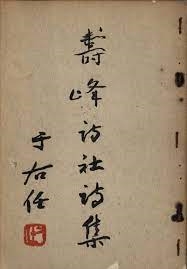 壽峰詩社詩集
于右任